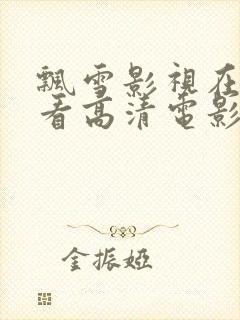 飄雪影視在
看高清電影
金振婭